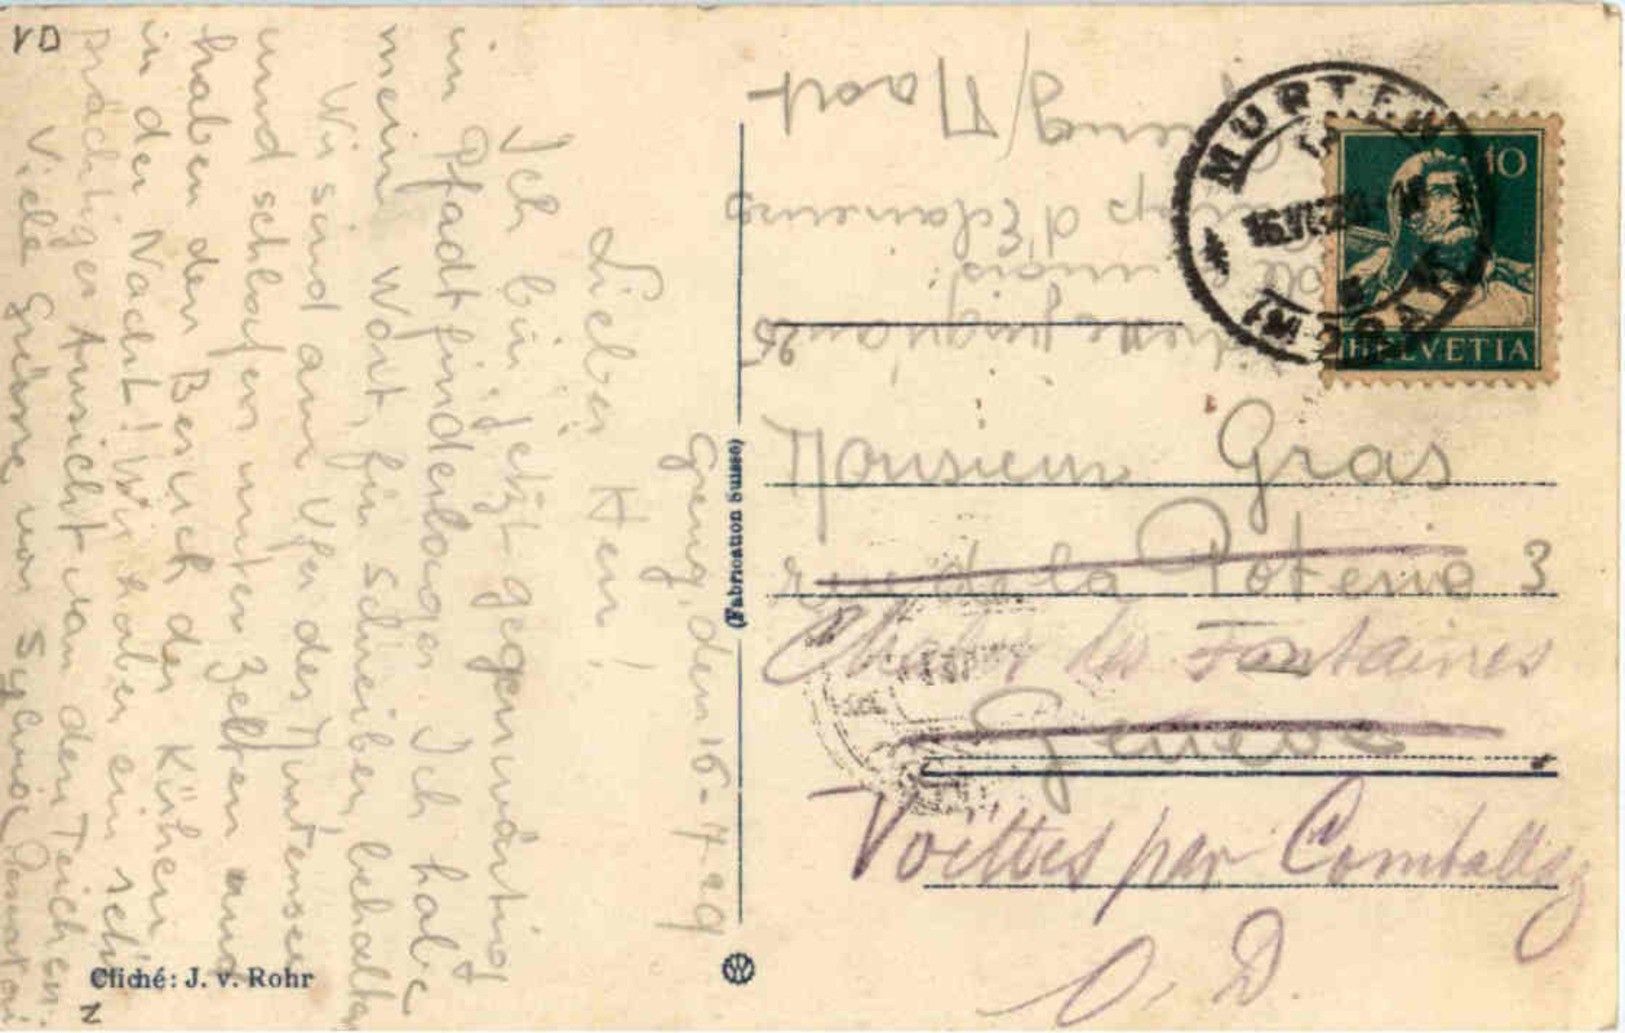 Greng, den 16-7-29
Lieber Herr!
Ich bin jetzt gegenwärtig
im Pfadfinderlager. Ich habe
mein Wort, für Schreiben, behalten
Wir sind am Ufer des Murtensee
und schlafen unter Zelten und
haben den Besuch der Kühen
in der Nacht! Wir haben ein sehr
prächtiger Aussicht von den Teichen.
Viele Grüsse von Sylvio
VD
Cliché: J. v. Rohr
N
(Fabrication Suisse)
MURTEN
MORAT
10
HELVETIA
Greng/Morat
camp d'Eclaireurs
Monsieur Gras
rue de la Poterie 3
Chalet les Fontaines
Genève
Voëttes par Comballaz
V. D.